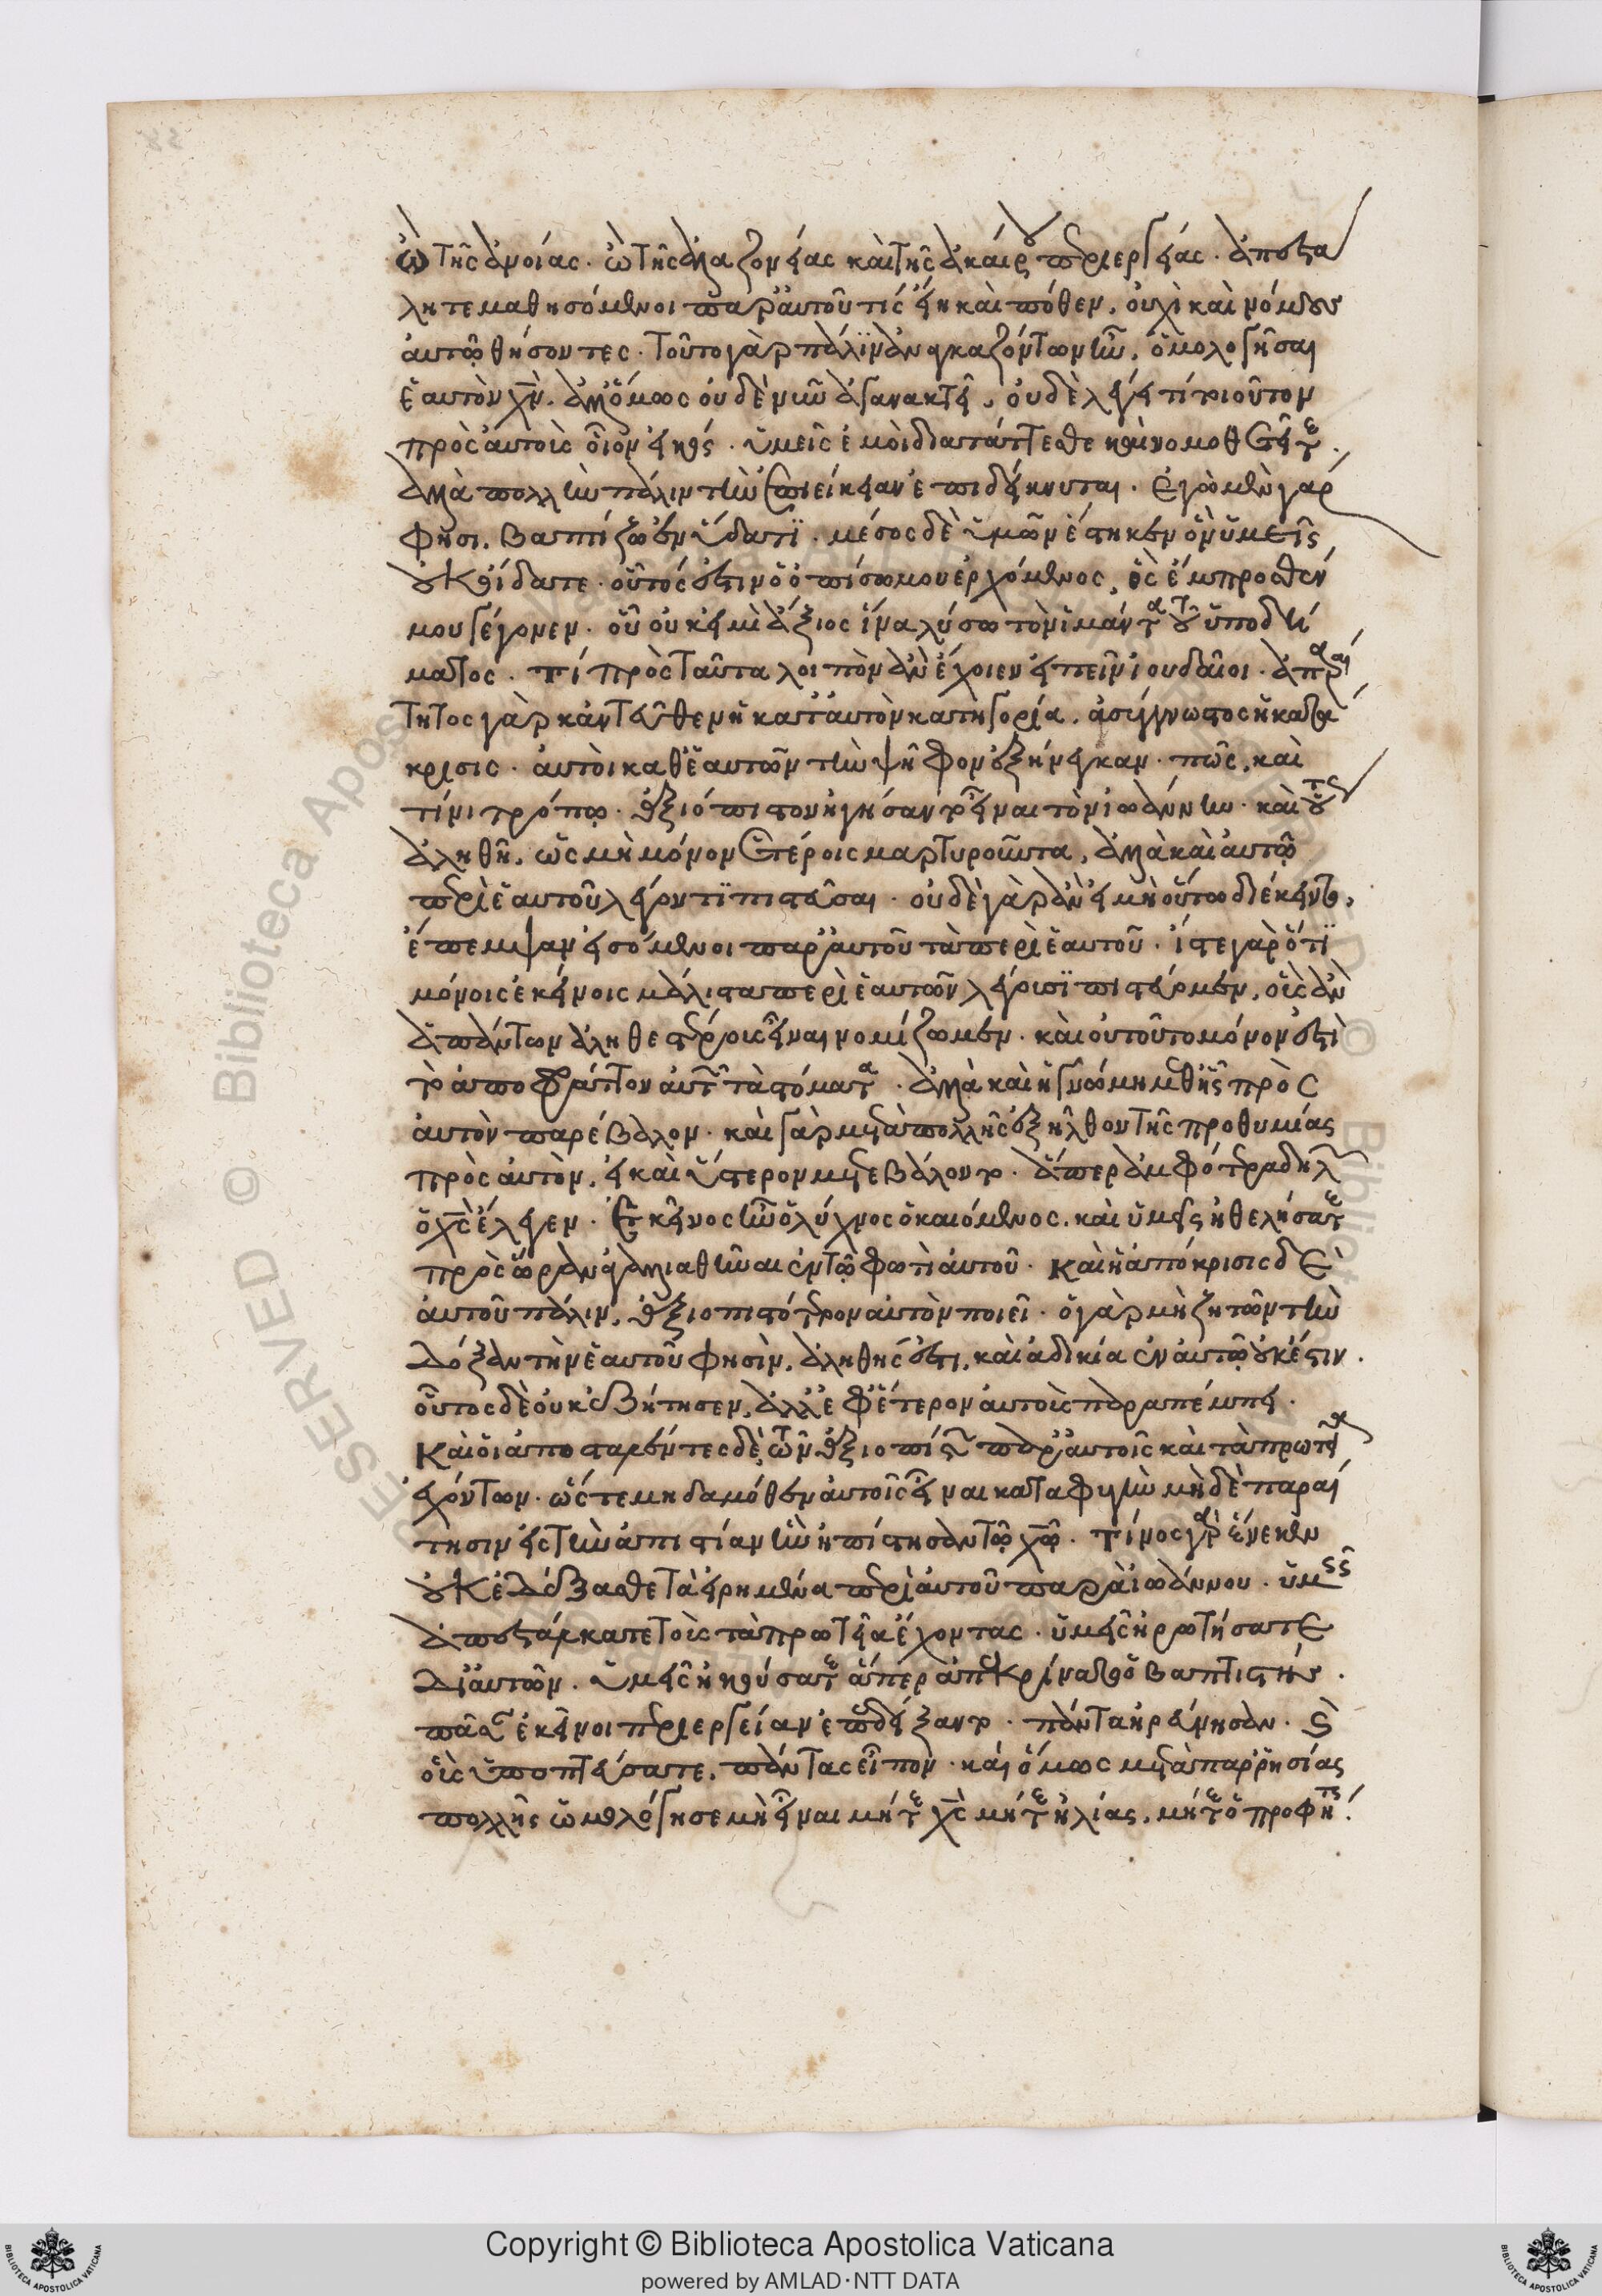 ὢ τῆς ἀνοίας. ὢ τῆς ἀλαζονείας καὶ τῆς ἀκαίρου περιεργείας. ἀπεστά
λητε μαθησόμενοι παρ' αὐτοῦ τίς εἴη καὶ πόθεν, οὐχὶ καὶ νόμους
αὐτῷ θήσοντες. τοῦτο γὰρ πάλιν ἀναγκαζόντων ἦν, ὁμολογῆσαι
ἑαυτὸν χν. ἀλλ' ὅμως οὐδὲ νῦν ἀγανακτεῖ, οὐδὲ λέγει τι τοιοῦτον
πρὸς αὐτοὺς οἷον εἰκός. ὑμεῖς ἐμοὶ διατάττεσθε καὶ νομοθετεῖτε.
ἀλλὰ πολλὴν πάλιν τὴν ἐπιείκειαν ἐπιδείκνυται. ἐγὼ μὲν γάρ
φησι, βαπτίζω ἐν ὕδατι. μέσος δὲ ὑμῶν ἕστηκεν ὃν ὑμεῖς
οὐκ οἴδατε. οὗτός ἐστιν ὁ ὀπίσω μου ἐρχόμενος, ὃς ἔμπροσθέν
μου γέγονεν. οὗ οὐκ εἰμὶ ἄξιος ἵνα λύσω τὸν ἱμάντα τοῦ ὑποδή
ματος. τί πρὸς ταῦτα λοιπὸν ἂν ἔχοιεν εἰπεῖν ἰουδαῖοι. ἀπαραί
τητος γὰρ κἀντεῦθεν ἡ κατ' αὐτῶν κατηγορία, ἀσύγγνωστος ἡ κατά
κρισις. αὐτοὶ καθ' ἑαυτῶν τὴν ψῆφον ἐξήνεγκαν. πῶς, καὶ
τίνι τρόπῳ. ἀξιόπιστον ἡγήσαντο εἶναι τὸν ἰωάννην. καὶ οὕτως
ἀληθῆ, ὡς μὴ μόνον ἑτέροις μαρτυροῦντα, ἀλλὰ καὶ αὐτῷ
περὶ ἑαυτοῦ λέγοντι πιστεῦσαι. οὐδὲ γὰρ ἂν εἰ μὴ οὕτω διέκειντο,
ἔπεμψαν εἰσόμενοι παρ' αὐτοῦ τὰ περὶ ἑαυτοῦ. ἴστε γὰρ ὅτι
μόνοις ἐκείνοις μάλιστα περὶ ἑαυτῶν λέγουσι πιστεύομεν, οὓς ἂν
ἁπάντων ἀληθεστέρους εἶναι νομίζωμεν. καὶ οὐ τοῦτο μόνον ἐστὶ
τὸ ἀποφράττον αὐτῶν τὰ στόματα. ἀλλὰ καὶ ἡ γνώμη μεθ' ἧς πρὸς
αὐτὸν παρέβαλον. καὶ γὰρ μετὰ πολλῆς ἐξῆλθον τῆς προθυμίας
πρὸς αὐτὸν, εἰ καὶ ὕστερον μετεβάλοντο. ἅπερ ἀμφότερα δηλῶν
ὁ χς ἔλεγεν. ἐκεῖνος ἦν ὁ λύχνος ὁ καιόμενος, καὶ ὑμεῖς ἠθελήσατε
πρὸς ὥραν ἀγαλλιαθῆναι ἐν τῷ φωτὶ αὐτοῦ. καὶ ἡ ἀπόκρισις δὲ
αὐτοῦ πάλιν, ἀξιοπιστότερον αὐτὸν ποιεῖ. ὁ γὰρ μὴ ζητῶν τὴν
δόξαν τὴν ἑαυτοῦ φησὶν, ἀληθής ἐστι, καὶ ἀδικία ἐν αὐτῷ οὐκ ἔστιν.
οὗτος δὲ οὐκ ἐζήτησεν, ἀλλ' ἐφ' ἕτερον αὐτοὺς παραπέμπει.
καὶ οἱ ἀποσταλέντες δὲ, τῶν ἀξιοπίστων παρ' αὐτοῖς καὶ τὰ πρωτεῖα
ἐχόντων. ὥστε μηδαμόθεν αὐτοῖς εἶναι καταφυγὴν μὴ δὲ παραί
τησιν εἰς τὴν ἀπιστίαν ἣν ἠπίστησαν τῷ χῷ. τίνος γὰρ ἕνεκεν
οὐκ ἐδέξασθε τὰ εἰρημένα περὶ αὐτοῦ παρὰ ἰωάννου. ὑμεῖς
ἀπεστάλκατε τοὺς τὰ πρωτεῖα ἔχοντας. ὑμεῖς ἠρωτήσατε
δι' αὐτῶν. ὑμεῖς ἠκούσατε ἅπερ ἀπεκρίνατο ὁ βαπτιστής.
πᾶσαν ἐκεῖνοι περιεργείαν ἐπεδείξαντο. πάντα ἠρεύνησαν. καὶ
οὓς ὑπωπτεύσατε, πάντας εἶπον. καὶ ὅμως μετὰ παρρησίας
πολλῆς ὡμολόγησε μὴ εἶναι μήτε χς μήτε ἠλίας, μήτε ὁ προφήτης.